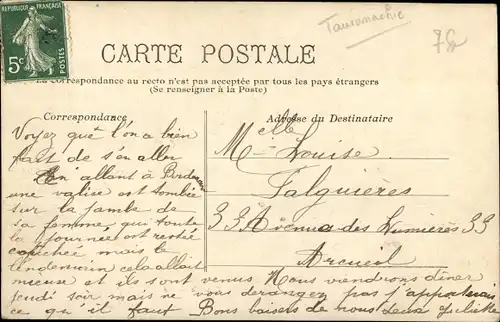 Tauromachie
78
RÉPUBLIQUE FRANÇAISE
5c
POSTES
CARTE POSTALE
La correspondance au recto n'est pas acceptée par tous les pays étrangers
(Se renseigner à la Poste)
Correspondance
Adresse du Destinataire
Voyez que l'on a bien
fait de s'en aller
En allant à Bordeaux
une valise est tombée
sur la jambe de
sa femme, qui toute
la journée est restée
couchée mais le
lendemain cela allait
mieux et ils sont venus Nous viendrons dîner
jeudi soir mais ne vous derangez pas j'apporterai
ce qu'il faut Bons baisers de nous deux Juliette
Melle Louise
Falguières
33 Avenue des Lumières 33
Arcueil